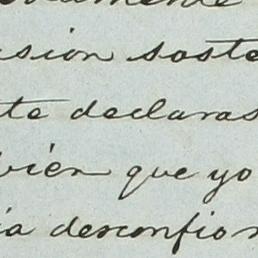 sión soste
te declaras
bién que yo
ía desconfian